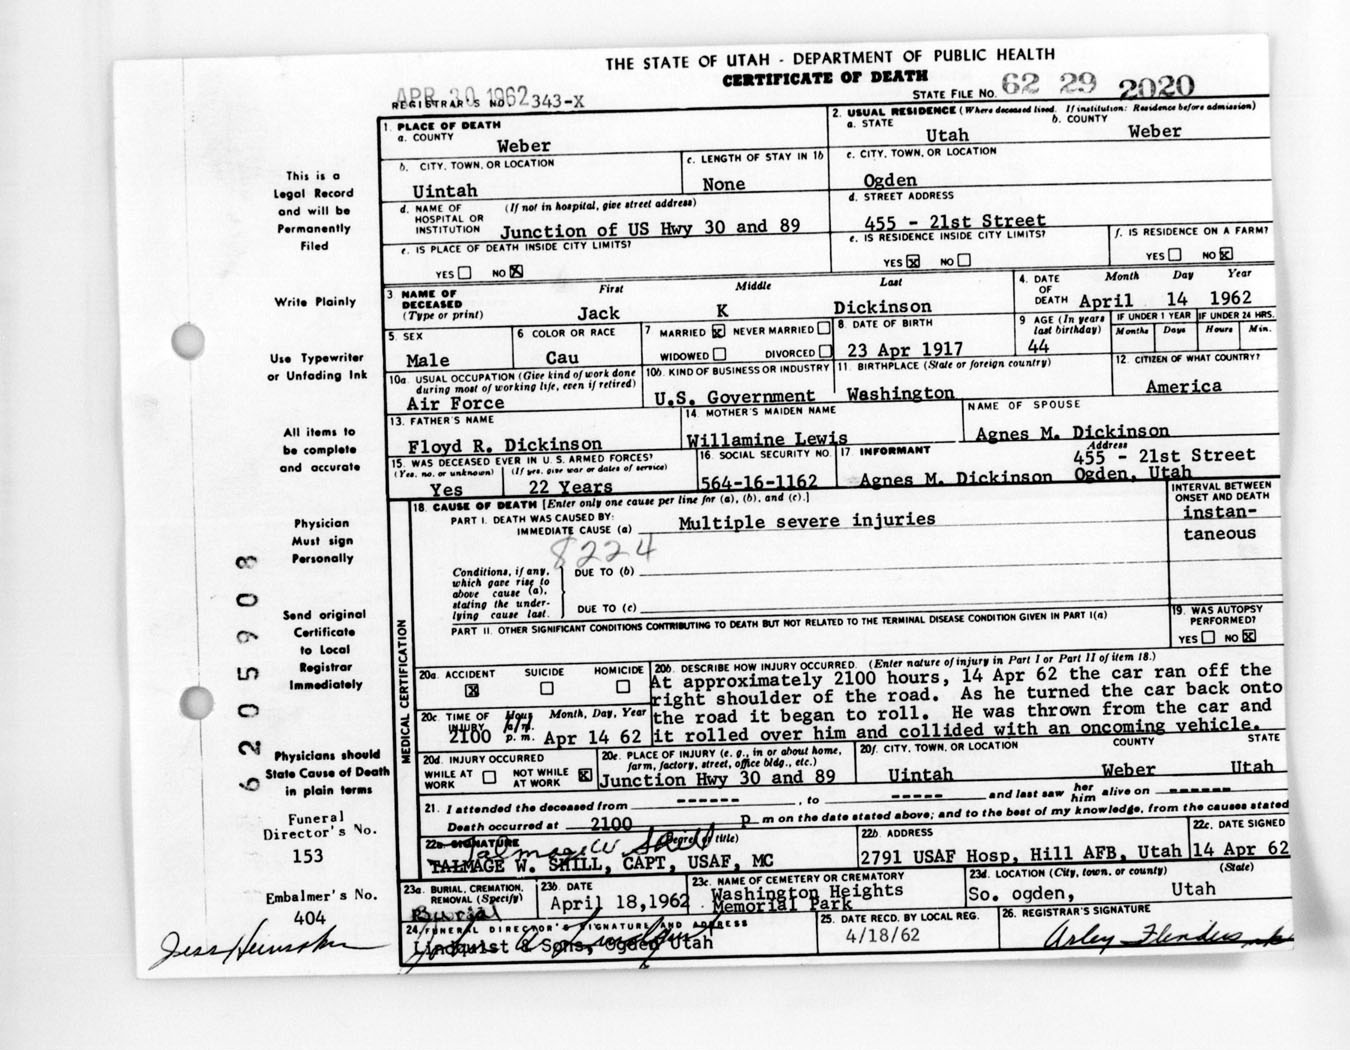 THE STATE OF UTAH - DEPARTMENT OF PUBLIC HEALTH
CERTIFICATE OF DEATH
APR 30 1962
REGISTRAR'S NO. 343-X
STATE FILE NO. 62 29 2020
1. PLACE OF DEATH
a. COUNTY
Weber
2. USUAL RESIDENCE (Where deceased lived. If institution: Residence before admission)
a. STATE b. COUNTY
Utah Weber
b. CITY, TOWN, OR LOCATION
Uintah
c. LENGTH OF STAY IN 1b
None
c. CITY, TOWN, OR LOCATION
Ogden
d. NAME OF HOSPITAL OR INSTITUTION (If not in hospital, give street address)
Junction of US Hwy 30 and 89
d. STREET ADDRESS
455 - 21st Street
e. IS PLACE OF DEATH INSIDE CITY LIMITS?
YES NO X
e. IS RESIDENCE INSIDE CITY LIMITS?
YES X NO
f. IS RESIDENCE ON A FARM?
YES NO X
3 NAME OF DECEASED (Type or print)
First Middle Last
Jack K Dickinson
4. DATE OF DEATH
Month Day Year
April 14 1962
5. SEX
Male
6 COLOR OR RACE
Cau
7 MARRIED X NEVER MARRIED
WIDOWED DIVORCED
8. DATE OF BIRTH
23 Apr 1917
9 AGE (In years last birthday)
44
IF UNDER 1 YEAR
Months Days
IF UNDER 24 HRS.
Hours Min.
10a. USUAL OCCUPATION (Give kind of work done during most of working life, even if retired)
Air Force
10b. KIND OF BUSINESS OR INDUSTRY
U.S. Government
11. BIRTHPLACE (State or foreign country)
Washington
12. CITIZEN OF WHAT COUNTRY?
America
13. FATHER'S NAME
Floyd R. Dickinson
14. MOTHER'S MAIDEN NAME
Willamine Lewis
NAME OF SPOUSE
Agnes M. Dickinson
15. WAS DECEASED EVER IN U.S. ARMED FORCES?
(Yes, no, or unknown) (If yes, give war or dates of service)
Yes 22 Years
16 SOCIAL SECURITY NO.
564-16-1162
17 INFORMANT Address
455 - 21st Street
Agnes M. Dickinson Ogden, Utah
MEDICAL CERTIFICATION
18. CAUSE OF DEATH [Enter only one cause per line for (a), (b), and (c).]
PART I. DEATH WAS CAUSED BY:
IMMEDIATE CAUSE (a) Multiple severe injuries
8224
INTERVAL BETWEEN ONSET AND DEATH
instan-
taneous
Conditions, if any, which gave rise to above cause (a), stating the underlying cause last.
DUE TO (b)
DUE TO (c)
PART II. OTHER SIGNIFICANT CONDITIONS CONTRIBUTING TO DEATH BUT NOT RELATED TO THE TERMINAL DISEASE CONDITION GIVEN IN PART I(a)
19. WAS AUTOPSY PERFORMED?
YES NO X
20a. ACCIDENT SUICIDE HOMICIDE
X
20b. DESCRIBE HOW INJURY OCCURRED. (Enter nature of injury in Part I or Part II of item 18.)
At approximately 2100 hours, 14 Apr 62 the car ran off the
right shoulder of the road. As he turned the car back onto
the road it began to roll. He was thrown from the car and
it rolled over him and collided with an oncoming vehicle.
20c. TIME OF INJURY Hour a.m. p.m. Month, Day, Year
2100 Apr 14 62
20d. INJURY OCCURRED
WHILE AT WORK NOT WHILE AT WORK X
20e. PLACE OF INJURY (e. g., in or about home, farm, factory, street, office bldg., etc.)
Junction Hwy 30 and 89
20f. CITY, TOWN, OR LOCATION COUNTY STATE
Uintah Weber Utah
21. I attended the deceased from ------, to ----- and last saw her him alive on ------
Death occurred at 2100 p m on the date stated above; and to the best of my knowledge, from the causes stated
22a. SIGNATURE (Degree or title)
Talmage W Shill
TALMAGE W. SHILL, CAPT, USAF, MC
22b. ADDRESS
2791 USAF Hosp, Hill AFB, Utah
22c. DATE SIGNED
14 Apr 62
23a. BURIAL, CREMATION, REMOVAL (Specify)
Burial
23b. DATE
April 18, 1962
23c. NAME OF CEMETERY OR CREMATORY
Washington Heights
Memorial Park
23d. LOCATION (City, town, or county) (State)
So. ogden, Utah
24. FUNERAL DIRECTOR'S SIGNATURE AND ADDRESS
Lindquist & Sons, Ogden Utah
25. DATE RECD. BY LOCAL REG.
4/18/62
26. REGISTRAR'S SIGNATURE
This is a
Legal Record
and will be
Permanently
Filed
Write Plainly
Use Typewriter
or Unfading Ink
All items to
be complete
and accurate
Physician
Must sign
Personally
Send original
Certificate
to Local
Registrar
Immediately
Physicians should
State Cause of Death
in plain terms
Funeral
Director's No.
153
Embalmer's No.
404
6205903